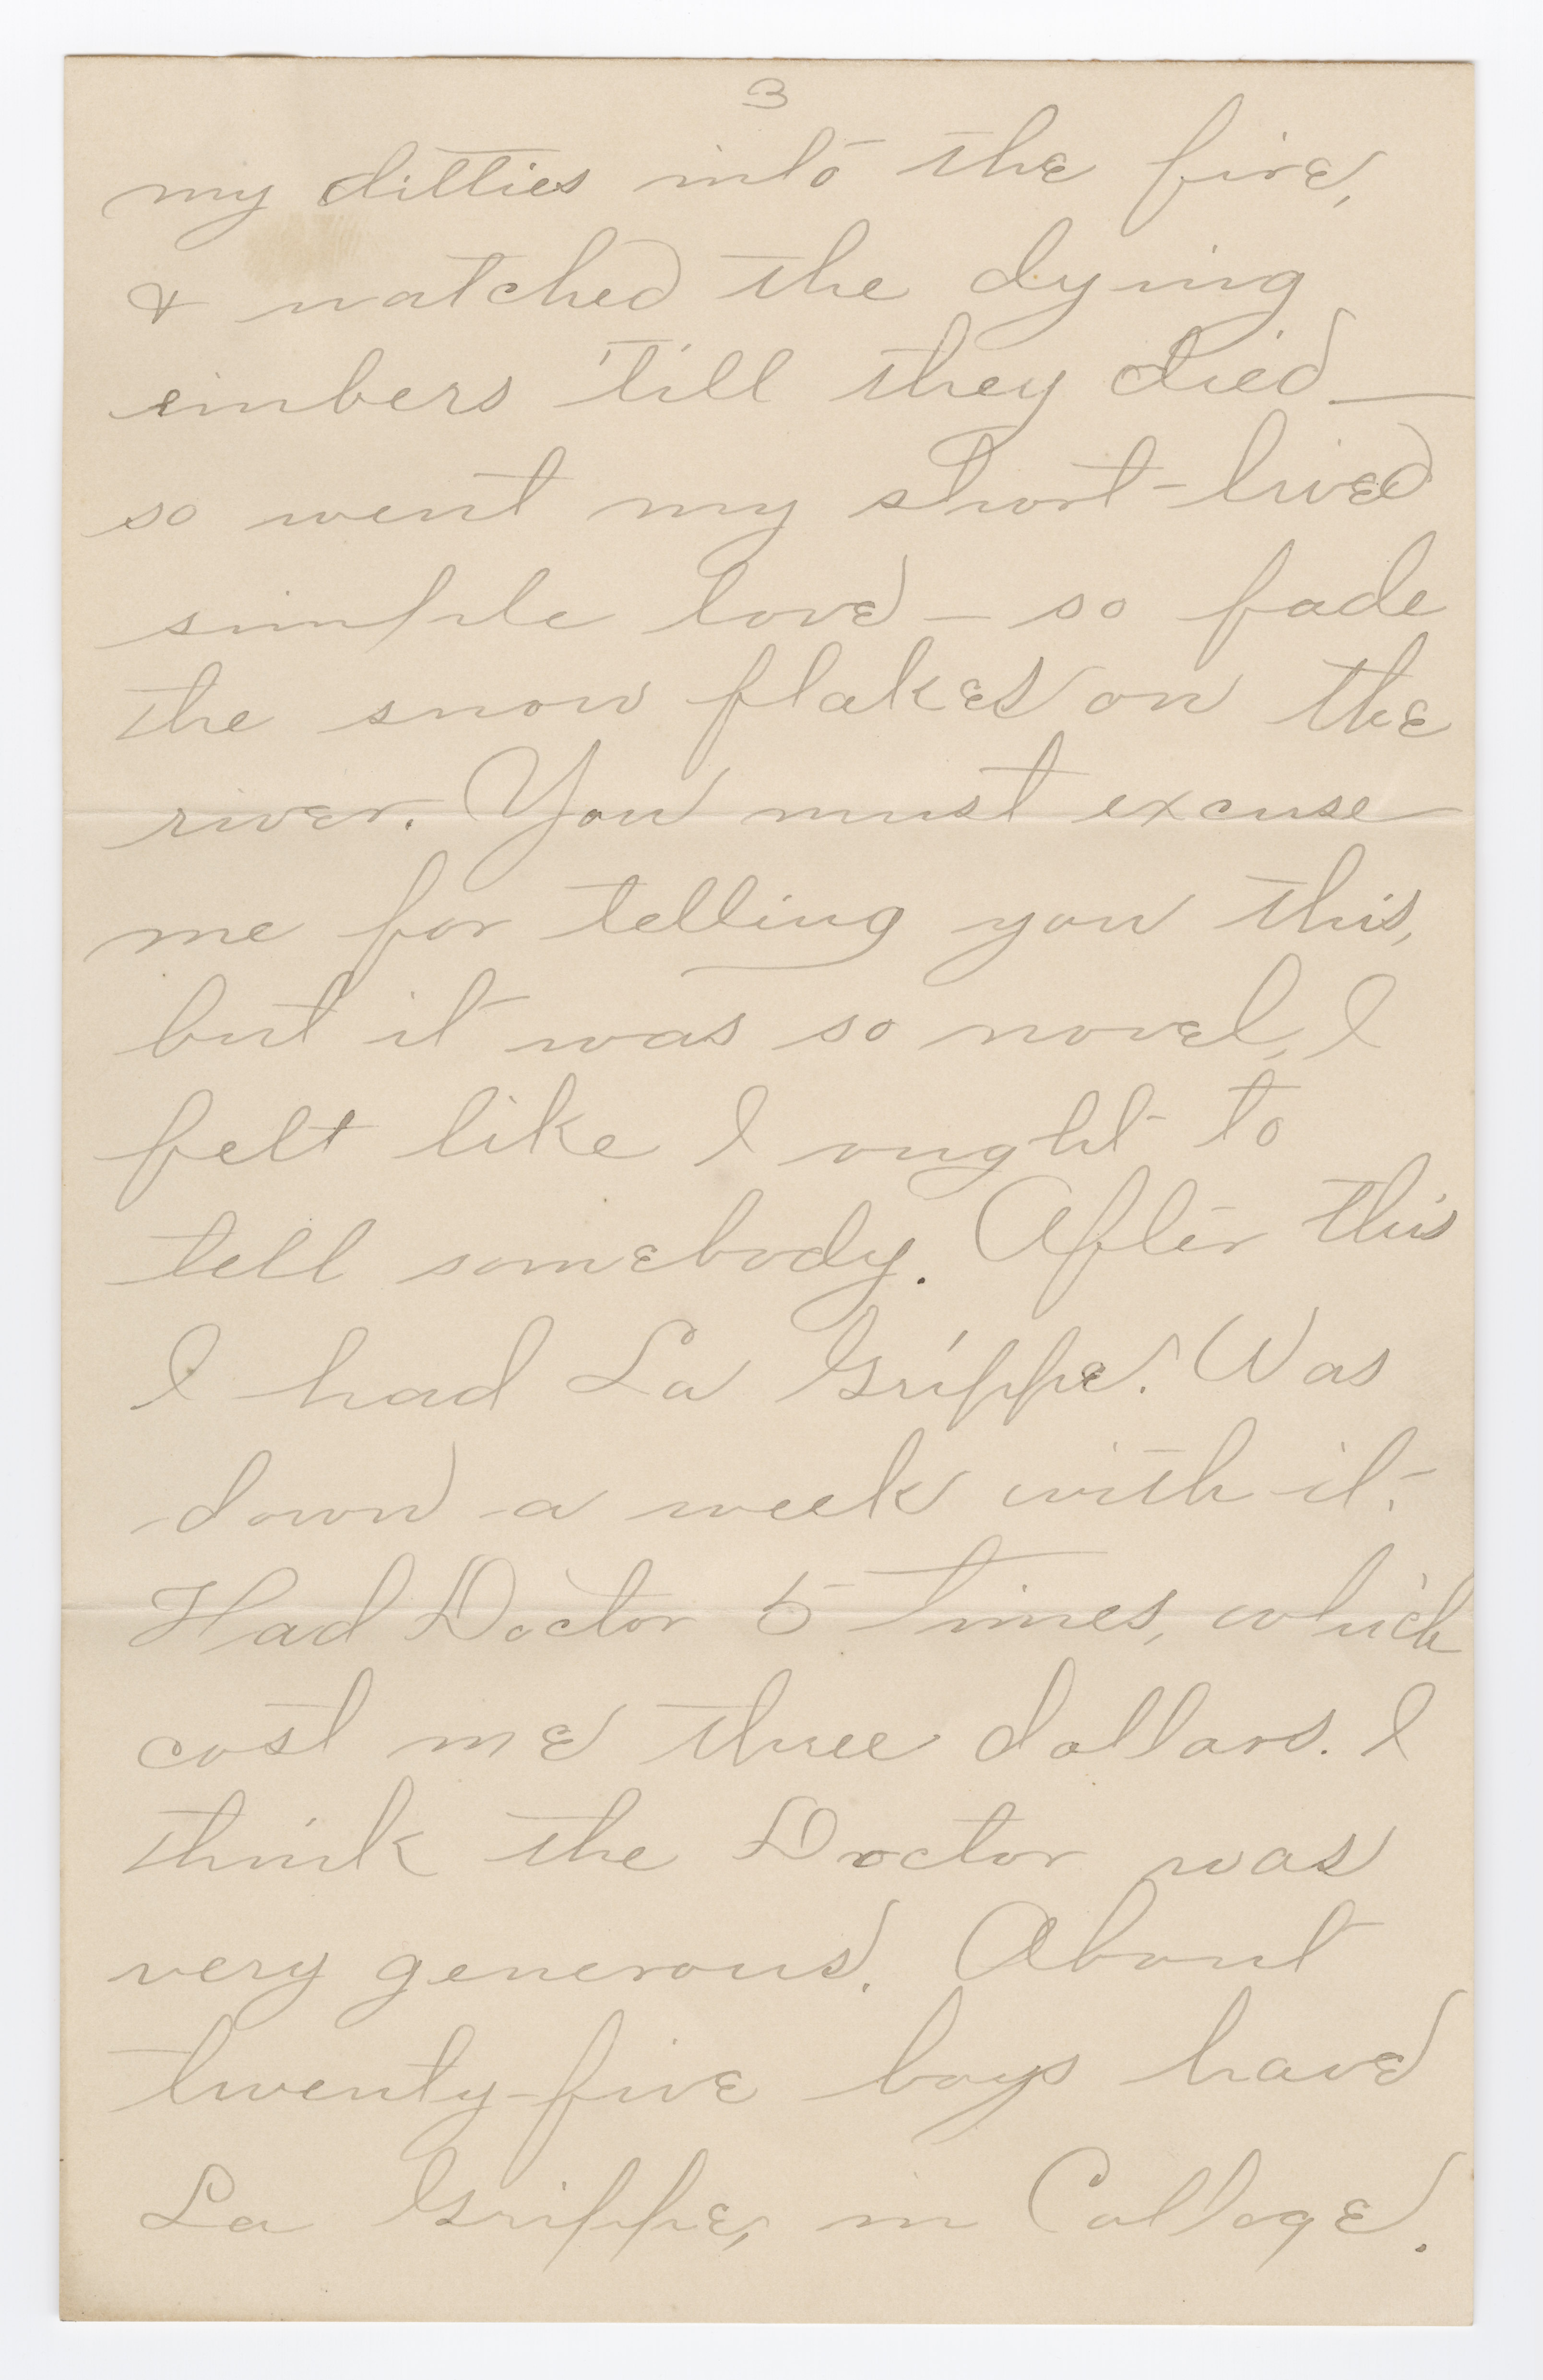 3
my ditties into the fire,
& watched the dying
embers 'till they died —
so went my short-lived
simple love — so fade
the snow flakes on the
river. You must excuse
me for telling you this,
but it was so novel, I
felt like I ought to
tell somebody. After this
I had La Grippe. Was
down a week with it.
Had Doctor 5 times, which
cost me three dollars. I
think the Doctor was
very generous. About
twenty-five boys have
La Grippe, in College.